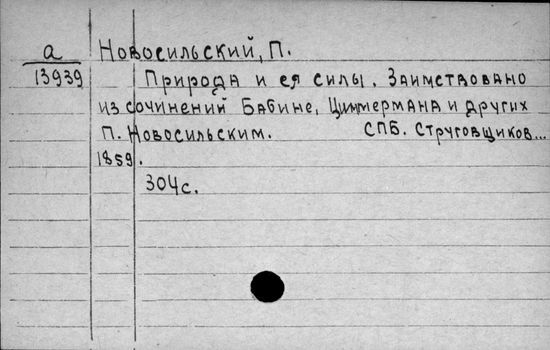 а Новосильский, П.
13939 Природа и ея силы. Заимствовано
из сочинений Бабине, Циммермана и других
П. Новосильским. СПБ. Струговщиков...
1859.
304с.